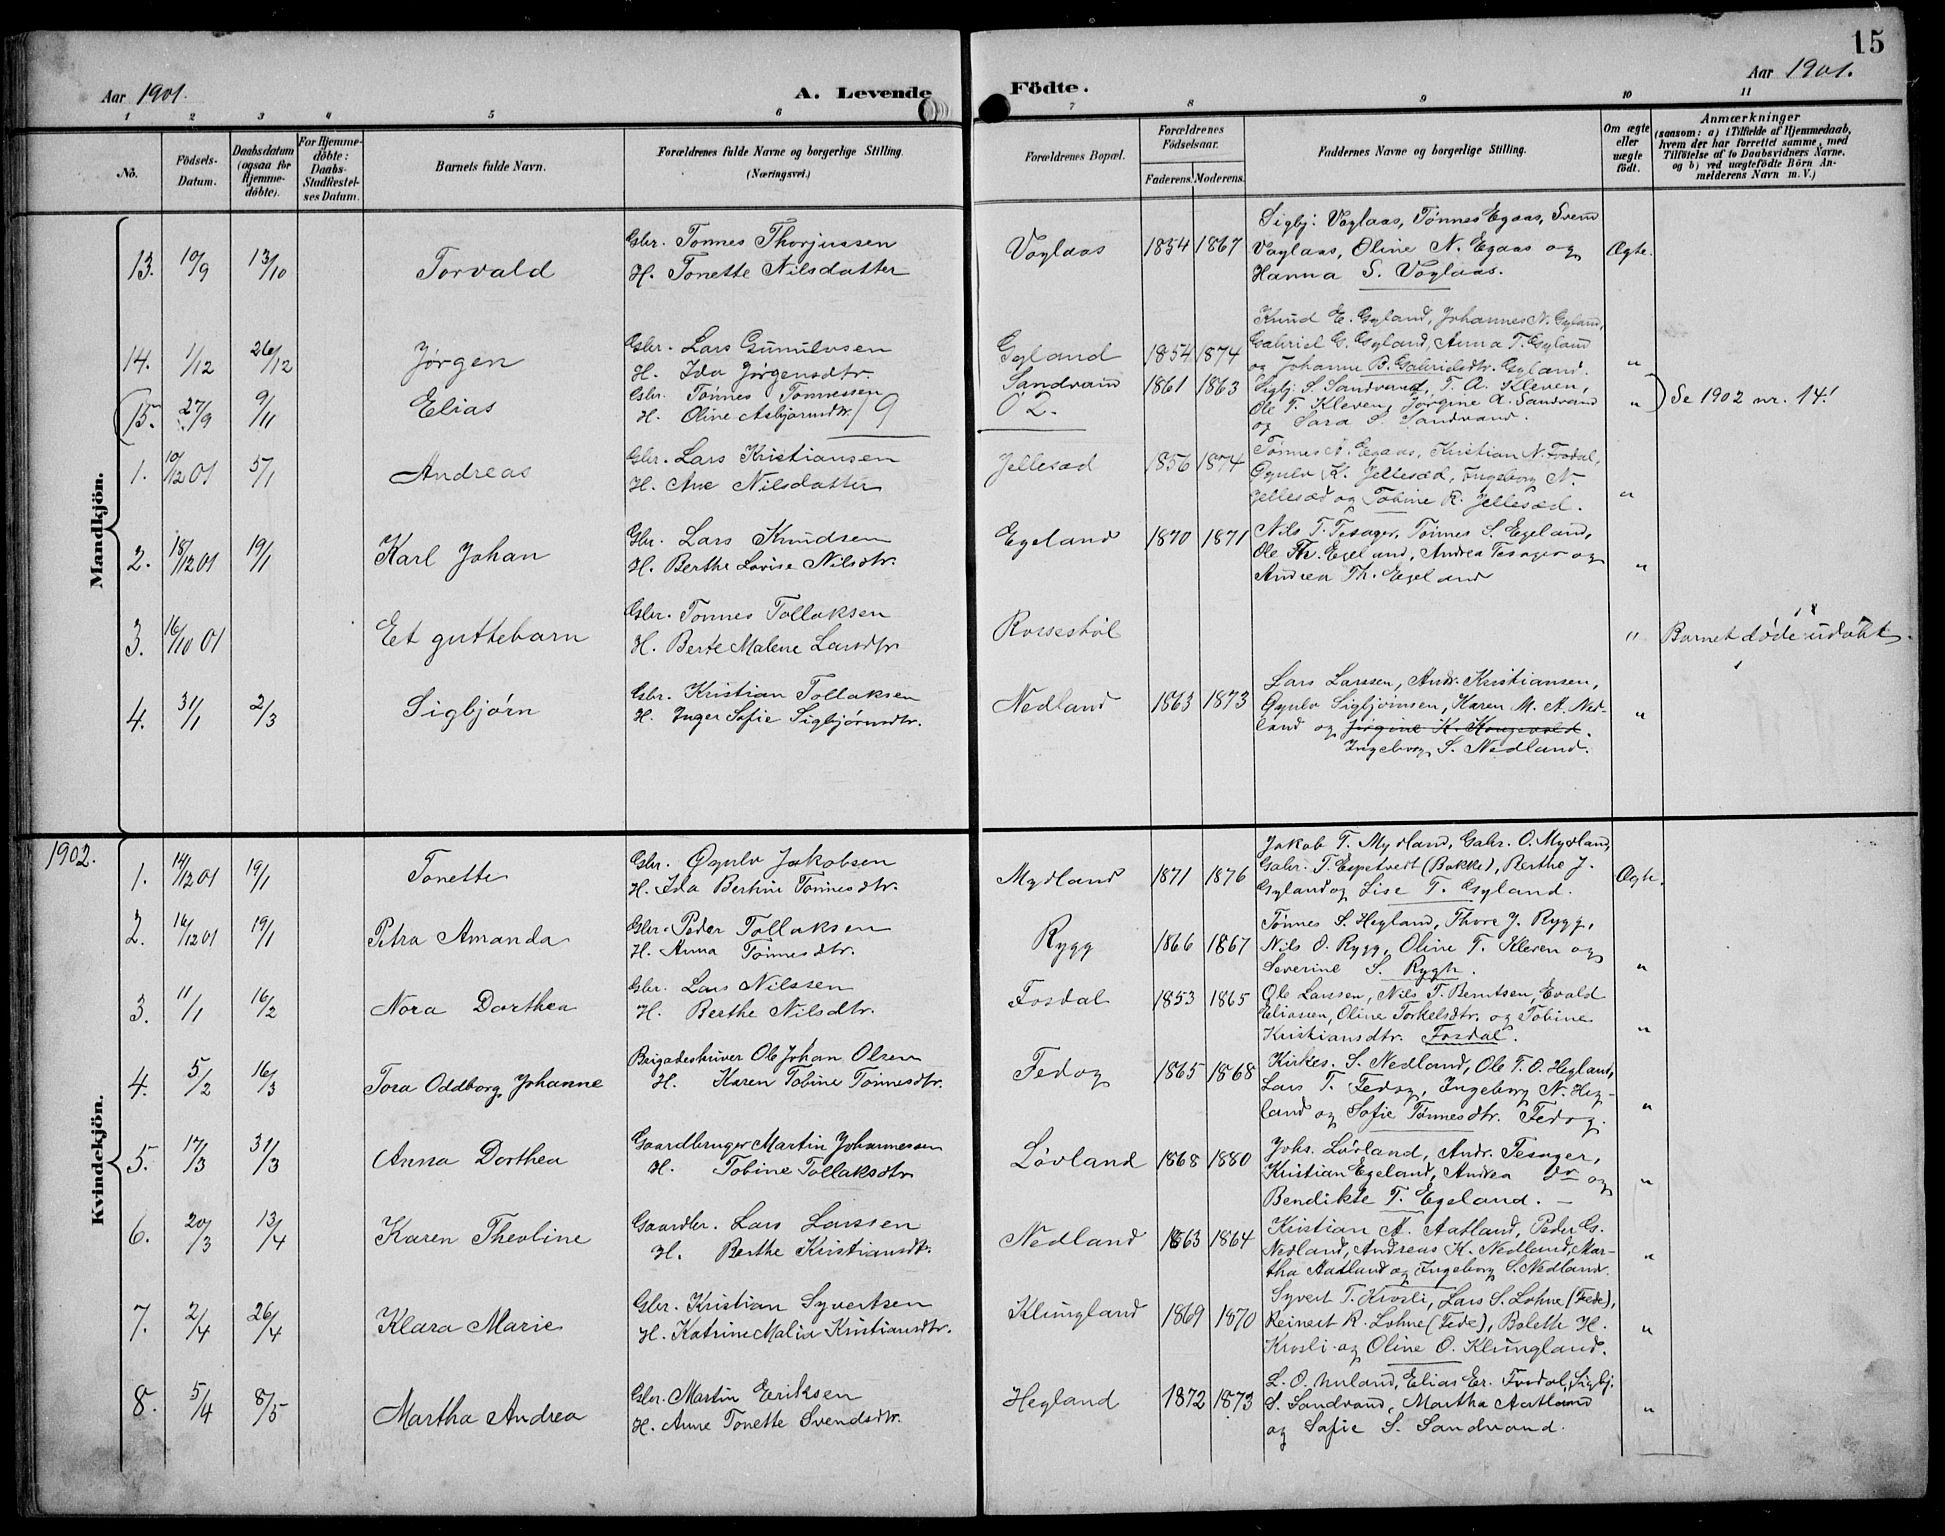 15
Aar 1901.
A. Levende
Födte.
Aar 1901.
1 2 3 4 5 6 7 8 9 10 11
No.
Födsels-Datum.
Daabsdatum (ogsaa for Hjemme-döbte).
For Hjemme-döbte: Daabs-Stadfæstel-ses Datum.
Barnets fulde Navn.
Forældrenes fulde Navne og borgerlige Stilling. (Næringsvei.)
Forældrenes Bopæl.
Forældrenes Födselsaar.
Faderens. Moderens.
Faddernes Navne og borgerlige Stilling.
Om ægte eller uægte födt.
Anmærkninger
(saasom: a) i Tilfælde af Hjemmedaab, hvem der har forrettet samme, med Tilföielse af to Daabsvidners Navne, og b) ved uægtefödte Börn An-melderens Navn m. V.)
Mandkjön.
13. 10/9 13/10 Torvald
Gbr. Tønnes Thorjussen
H. Tonette Nilsdatter
Voglaas 1854 1867
Sigbj: Voglaas, Tønnes Egaas, Svend
Voglaas, Oline N. Egaas og
Hanna S. Voglaas.
Ægte.
14. 1/12 26/12 Jørgen
Gbr. Lars Gunulvsen
H. Ida Jørgensdtr.
Gyland 1854 1874
Knud E. Gyland, Johannes N. Gyland,
Gabriel G. Gyland, Anna T. Gyland
og Johanne B. Gabrielsdtr. Gyland.
"
(15. 27/9 9/11 Elias
Gbr. Tønnes Tønnessen
H. Oline Asbjørnsdtr. / 9
Sandvand 1861 1863
Ø 2.
Sigbj. S. Sandvand, T. A. Kleven,
Ole T. Kleven, Jørgine A. Sandvand
og Sara S. Sandvand.
" ) Se 1902 nr. 14!
1. 10/12 01 5/1 Andreas
Gbr. Lars Kristiansen
H. Ane Nilsdatter
Jellesæd 1856 1874
Tønnes N. Egaas, Kristian N. Fosdal,
Øgulv K. Jellesæd, Ingeborg N.
Jellesæd og Tobine R. Jellesæd.
"
2. 18/12 01 19/1 Karl Johan
Gbr. Lars Knudsen
H. Berthe Lovise Nilsdtr.
Egeland 1870 1871
Nils T. Tesager, Tønnes S. Egeland,
Ole Th. Egeland, Andrea Tesager og
Andrea Th. Egeland
"
3. 16/10 01 Et guttebarn
Gbr. Tønnes Tollaksen
H. Berte Malene Larsdtr
Rossestøl
" Barnet døde udøbt.
4. 31/1 2/3 Sigbjørn
Gbr. Kristian Tollaksen
H. Inger Sofie Sigbjørnsdtr.
Nedland 1863 1873
Lars Larssen, Andr. Kristiansen,
Øgulv Sigbjørnsen, Karen M. A. Ned-
land og Jørgine K. Kongevold.
Ingeborg S. Nedland.
"
1902.
Kvindekjön.
1. 14/12 01 19/1 Tonette
Gbr. Øgulv Jakobsen
H. Ida Bertine Tønnesdtr.
Mydland 1871 1876
Jakob T. Mydland, Gabr. O. Mydland,
Gabr. T. Espetvedt (Bakke), Berthe J.
Gyland og Lise T. Gyland.
Ægte.
2. 16/12 01 19/1 Petra Amanda
Gbr. Peder Tollaksen
H. Anna Tønnesdtr.
Rygg 1866 1867
Tønnes S. Hegland, Thore J. Rygg,
Nils O. Rygg, Oline T. Kleven og
Severine S. Rygh.
"
3. 11/1 16/2 Nora Dorthea
Gbr. Lars Nilssen
H. Berthe Nilsdtr.
Fosdal 1853 1865
Ole Larssen, Nils T. Berntsen, Evald
Eliassen, Oline Torkelsdtr. og Tobine
Kristiansdtr. Fosdal.
"
4. 5/2 16/3 Tora Oddborg Johanne
Brigadeskriver Ole Johan Olsen
H. Karen Tobine Tønnesdtr.
Fedog 1865 1868
Kirkes. S. Nedland, Ole T. O. Hegland,
Lars T. Fedog, Ingeborg N. Heg-
land og Sofie Tønnesdtr. Fedog.
"
5. 17/3 31/3 Anna Dorthea
Gaardbruger Martin Johannessen
H. Tobine Tollaksdtr
Løvland 1868 1880
Johs. Løvland, Andr. Tesager,
Kristian Egeland, Andrea do og
Bendikte T. Egeland.
"
6. 20/3 13/4 Karen Theoline
Gaardbr. Lars Larssen
H. Berthe Kristiansdtr.
Nedland 1863 1864
Kristian A. Aatland, Peder G.
Nedland, Andreas K. Nedland, Mar-
tha Aatland og Ingeborg S. Nedland.
"
7. 2/4 26/4 Klara Marie
Gbr. Kristian Syvertsen
H. Katrine Malia Kristiansdtr.
Klungland 1869 1870
Syvert T. Krosli, Lars S. Lohne (Fede),
Reinert R. Lohne (Fede), Bolette H.
Krosli og Oline O. Klungland.
"
8. 5/4 8/5 Martha Andrea
Gbr. Martin Eriksen
H. Anne Tonette Svendsdtr.
Hegland 1872 1873
L. O. Nuland, Elias Er. Fosdal, Sigbj.
S. Sandvand, Martha Aatland
og Sofie S. Sandvand.
"